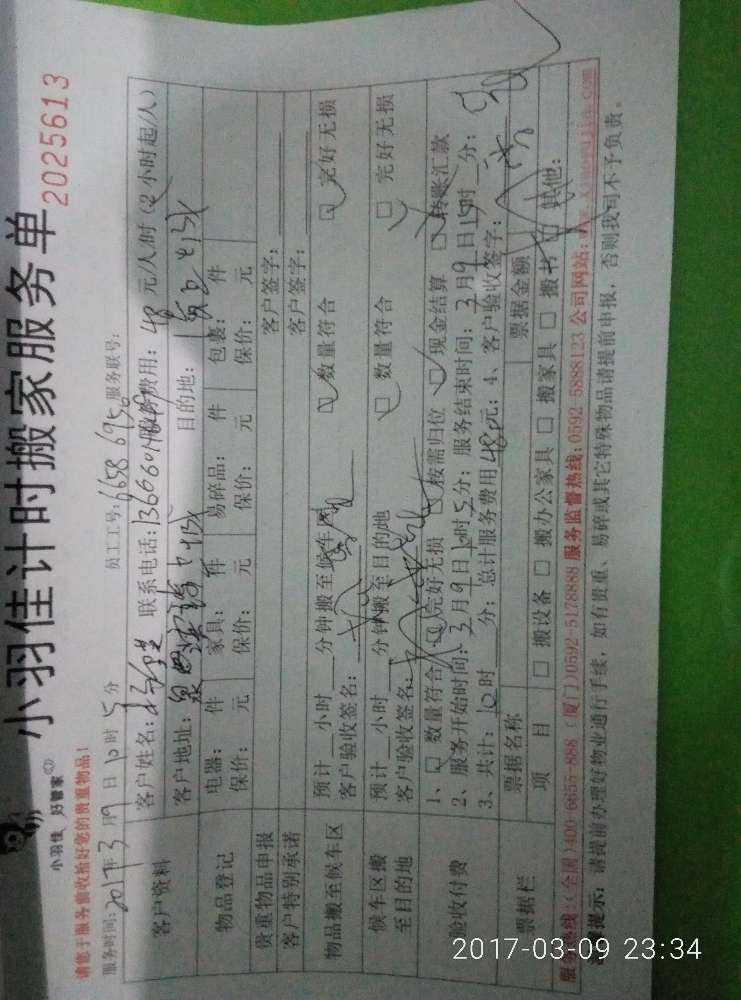 小羽佳计时搬家服务单
小羽佳 好管家
2025613
请您于服务前收拾好您的贵重物品!
服务时间:2017年3月9日10时5分 员工工号:6658 695 服务联号:
客户资料
客户姓名: 联系电话: 费用:48元/人/时(2小时起/人)
客户地址: 目的地:
物品登记
电器: 件 家具: 件 易碎品: 件 包裹: 件
保价: 元 保价: 元 保价: 元 保价: 元
贵重物品申报 客户签字:
客户特别承诺 客户签字:
物品搬至候车区
预计 小时 分钟搬至候车区 □数量符合 □完好无损
客户验收签名:
候车区搬至目的地
预计 小时 分钟搬至目的地 □数量符合 □完好无损
客户验收签名:
验收付费
1、□数量符合 □完好无损 □按需归位 □现金结算 □转账汇款
2、服务开始时间:3月9日10时5分;服务结束时间:3月9日15时 分;
3、共计:10时 分;总计服务费用480元;4、客户验收签字:
票据栏
票据名称 票据金额
项 目 □搬设备 □搬办公家具 □搬家具 □搬书 □其他:
服务热线:(全国)400-6655-888 (厦门)0592 5178888 服务监督热线:0592-5888123 公司网站:www.xiaoyujia.com
提示:请提前办理好物业通行手续,如有贵重、易碎或其它特殊物品请提前申报,否则我司不予负责。
2017-03-09 23:34